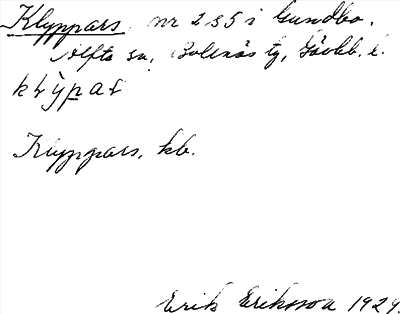 Klyppars, nr 2 o 5 i Gundbo,
Alfta sn, Bollnäs tg, Gävleb. l.
Klyppars, kb.
Erik Eriksson 1929.